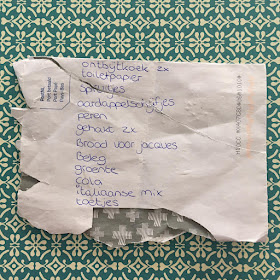 ontbijtkoek 2x
toiletpaper
spruitjes
aardappelschijfjes
peren
gehakt 2x
Brood voor jacques
Beleg
groente
cola
italiaanse mix
toetjes